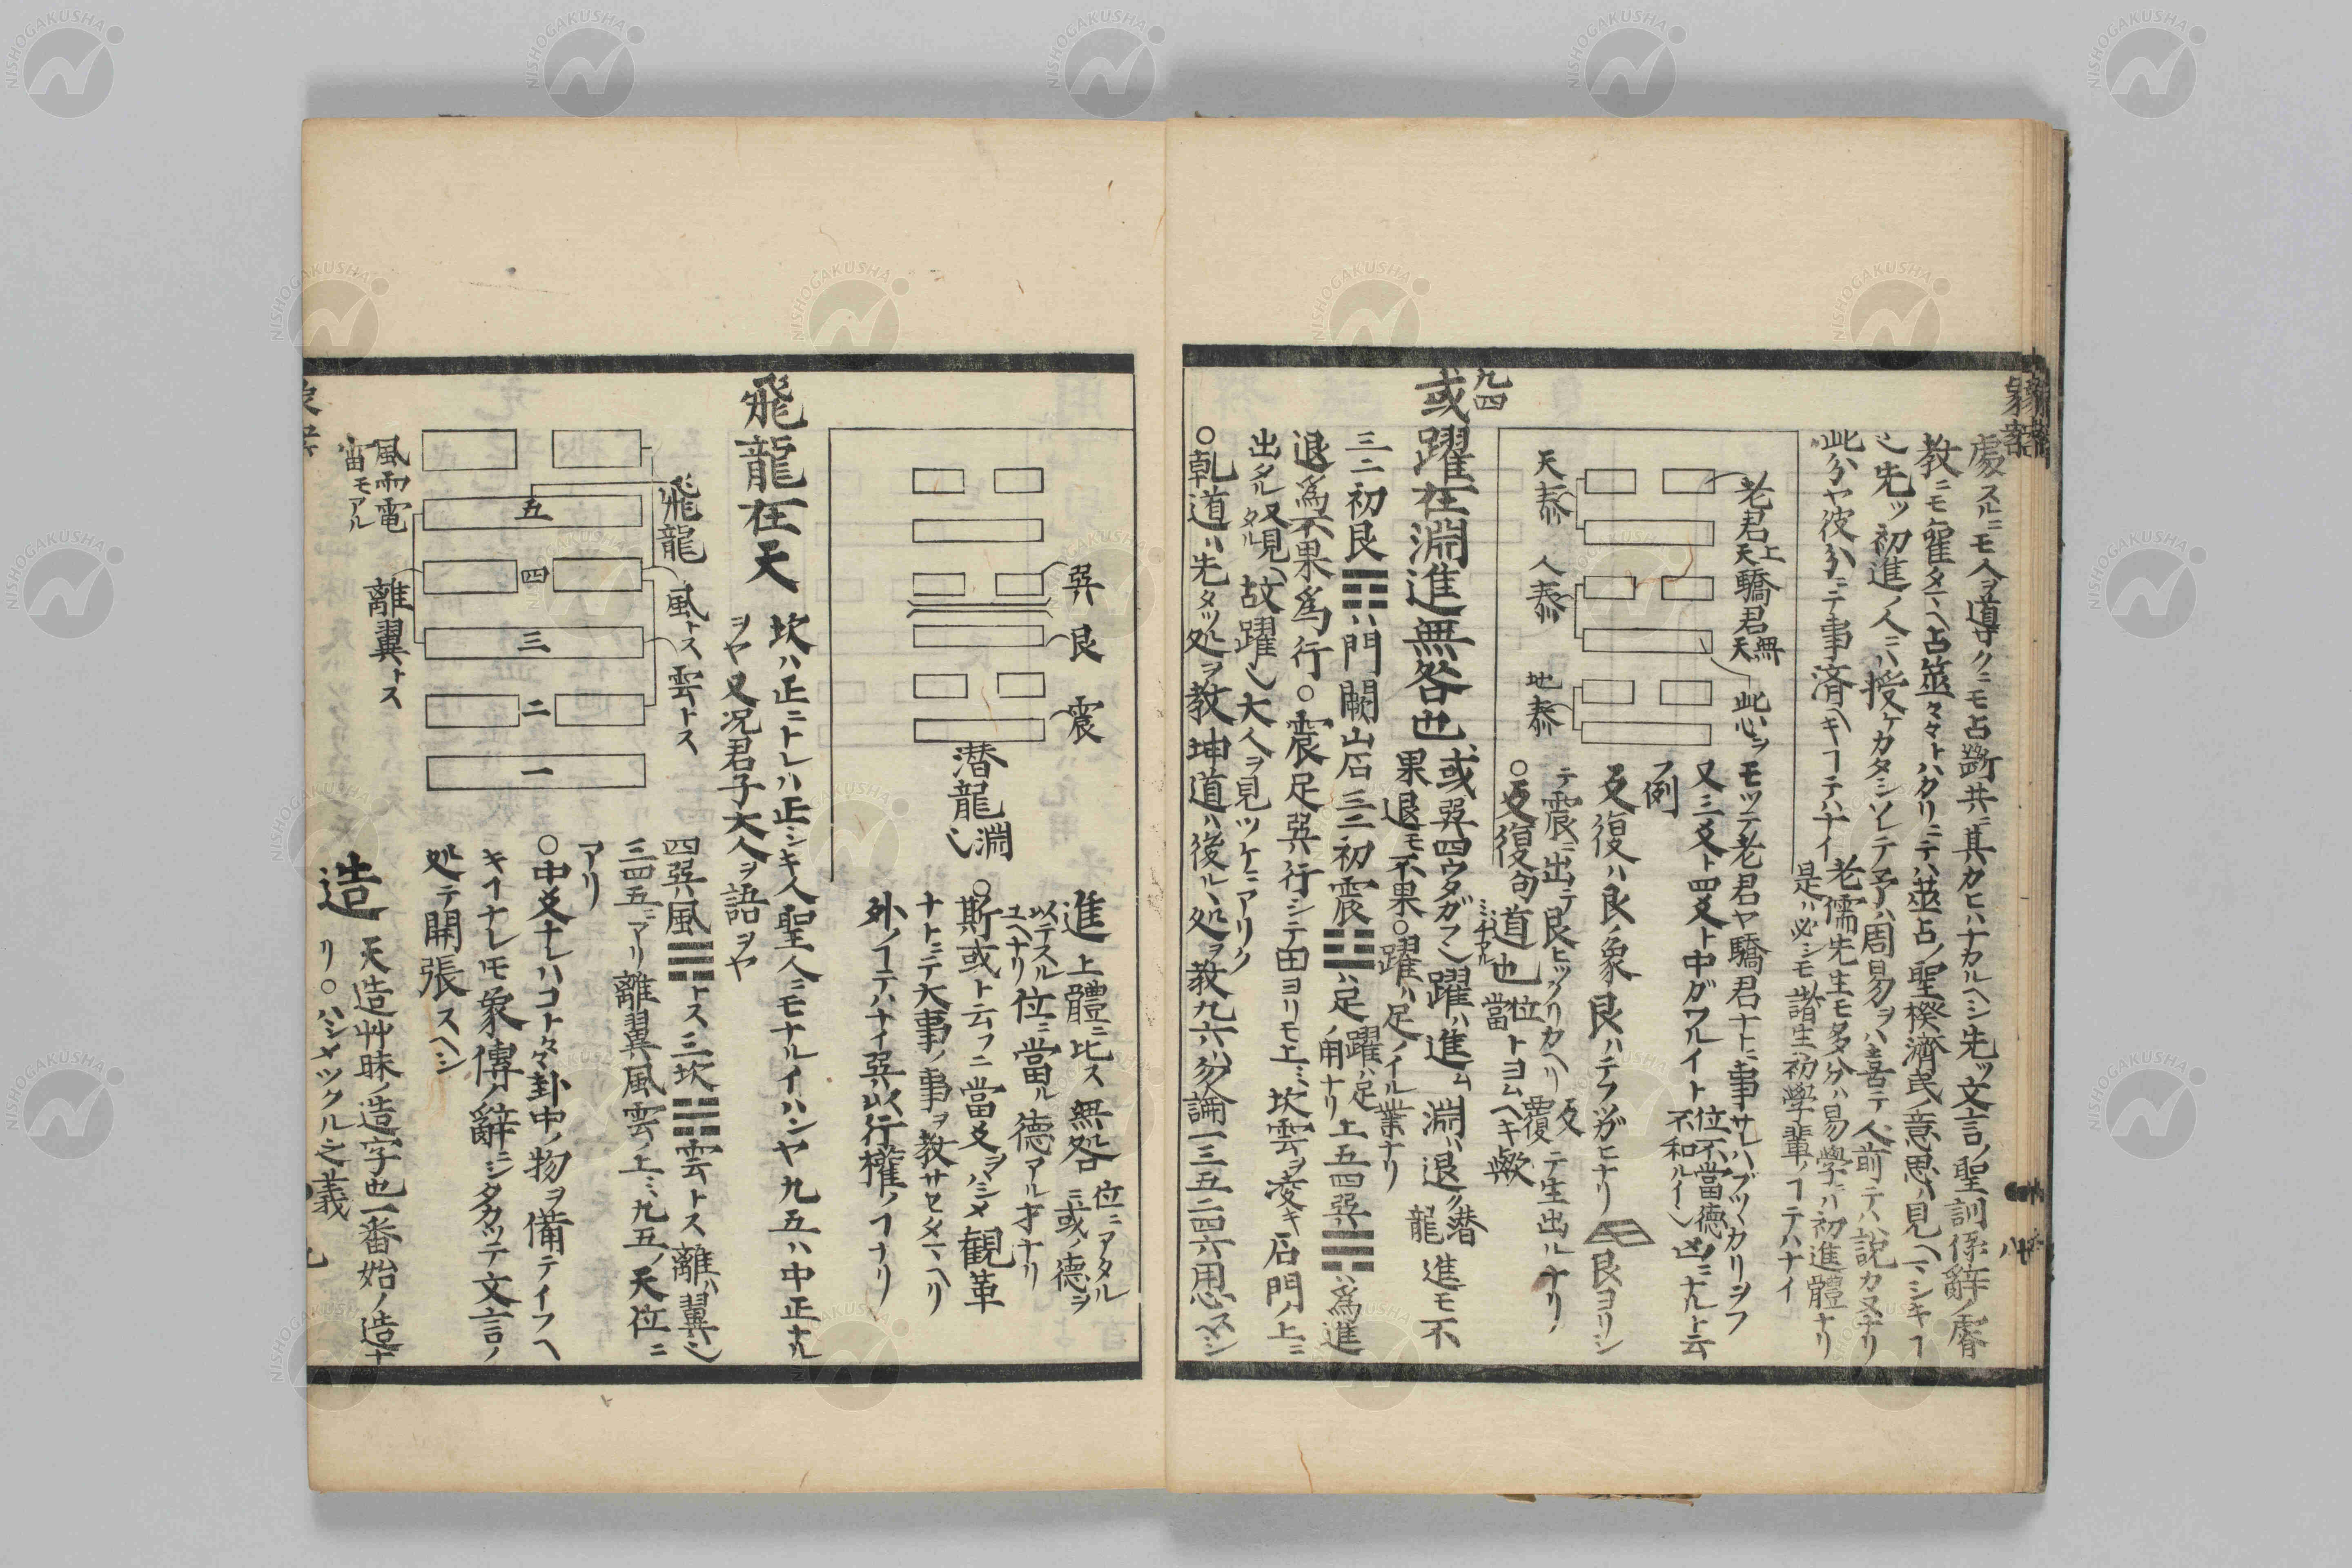 處スルニモ人ヲ導クニモ占斷共ニ其カヒハナカルヘシ先ツ文言ノ聖訓係辭ノ
教ニモ 占筮々々トハカリニテハ筮占ノ聖 濟民ノ意思ハ見ヘマシキヿ
先ツ初進ノ人ニハ授ケカタシソレテ予ハ周易ヲハ 人前テハ説カヌナリ
此分ヤ彼分ニテ事済ヘキヿテハナイ
老儒先生モ多分ハ易學ハ初進體ナリ
是ハ必シモ諸生初學輩ノヿテハナイ
老君天上驕君無天
此心ヲモツテ老君ヤ驕君ナトニ事サレハブツカリヲフ
天泰
人泰
地泰
又三爻ト四爻ト中ガワルイト位不當德ノ不和ルイ凶ニナルト云
フ例
反復ハ艮ノ象艮ハテフツガヒナリ 艮ヨリシ
テ震ニ出ニテ艮ヒツクリカヘリ反覆テ生出ルナリ
○反復句道也位當トヨムヘキ歟
九四
或躍在淵進無咎也
或巽四ウタガフ躍ハ進ム淵ハ退ク潜龍進モ不
果退モ不果○躍ハ足ノイル業ナリ
三二初艮☶ハ門闕山石三二初震☳ハ足躍ハ足ノ用ナリ上五四巽☴ハ爲進
退爲不果爲行○震足巽行シテ田ヨリモ上ミ坎雲ヲ凌キ石門ノ上ニ
出タル又見タル故躍大人ヲ見ツケニアリク
○乾道ハ先タツ処ヲ教坤道ハ後ルヽ処ヲ教九六ノ勿論一三五二四六用思スヘシ
巽
艮
震
潜龍
淵
進上體ニ比ス無咎位ニアタル
位ニ當ル德アル才ナリ
○斯或ト云フニ當爻ヲハシメ觀革
ナトニテ大事ノ事ヲ教サセタマヘリ
外ノヿテハナイ巽以行權ノヿナリ
飛龍在天
坎ハ正ニトレハ正シキ人聖人ニモナルイハンヤ九五ハ中正ナル
ヲヤ又况君子大人ヲ語ヲヤ
飛龍
風トス
雲トス
五
四
三
二
一
離翼トス
風雨電
雷モアル
四巽ハ風☴トス三坎☵雲トス離ハ翼
三四五ニアリ離翼風雲ノ上ミ九五ノ天位ニ
アリ
○中爻ナレハコトタマ卦中ノ物ヲ備テイフヘ
キイナレモ象傳ノ辭ニシタカツテ文言ノ
処テ開張スヘシ
造
天造艸昧ノ造字也一番始ノ造ナ
リ○ハシメツクル之義